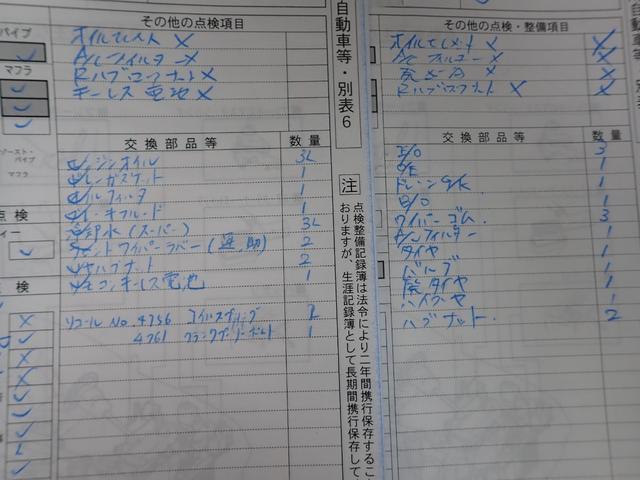 パイプ
マフラ
ゾースト・
パイプ
マフラ
点検
ィー
検
その他の点検項目
オイルエレメント ×
A/Cフィルター ×
Rハブロックナット ×
キーレス電池 ×
交換部品等 数量
エンジンオイル 3L
ドレンガスケット 1
オイルフィルタ 1
ブレーキフルード 1
冷却水(スーパー) 3L
フロントワイパーラバー(運,助) 2
リヤハブナット 2
リモコンキーレス電池 1
リコールNo.4756 コイルスプリング 2
4761 クランクプーリーボルト 1
自動車等・別表6
注
点検整備記録簿は法令により二年間携行保存するこ
おりますが、生涯記録簿として長期間携行保存して
その他の点検・整備項目
オイルエレメント ×
A/Cフィルター ×
Rハブナット ×
交換部品等 数量
E/O 3
O/E 1
ドレーンG/K 1
B/O 1
ワイパーゴム. 3
A/Cフィルター 1
タイヤ 1
バルブ 1
廃タイヤ 1
ハブナット. 2